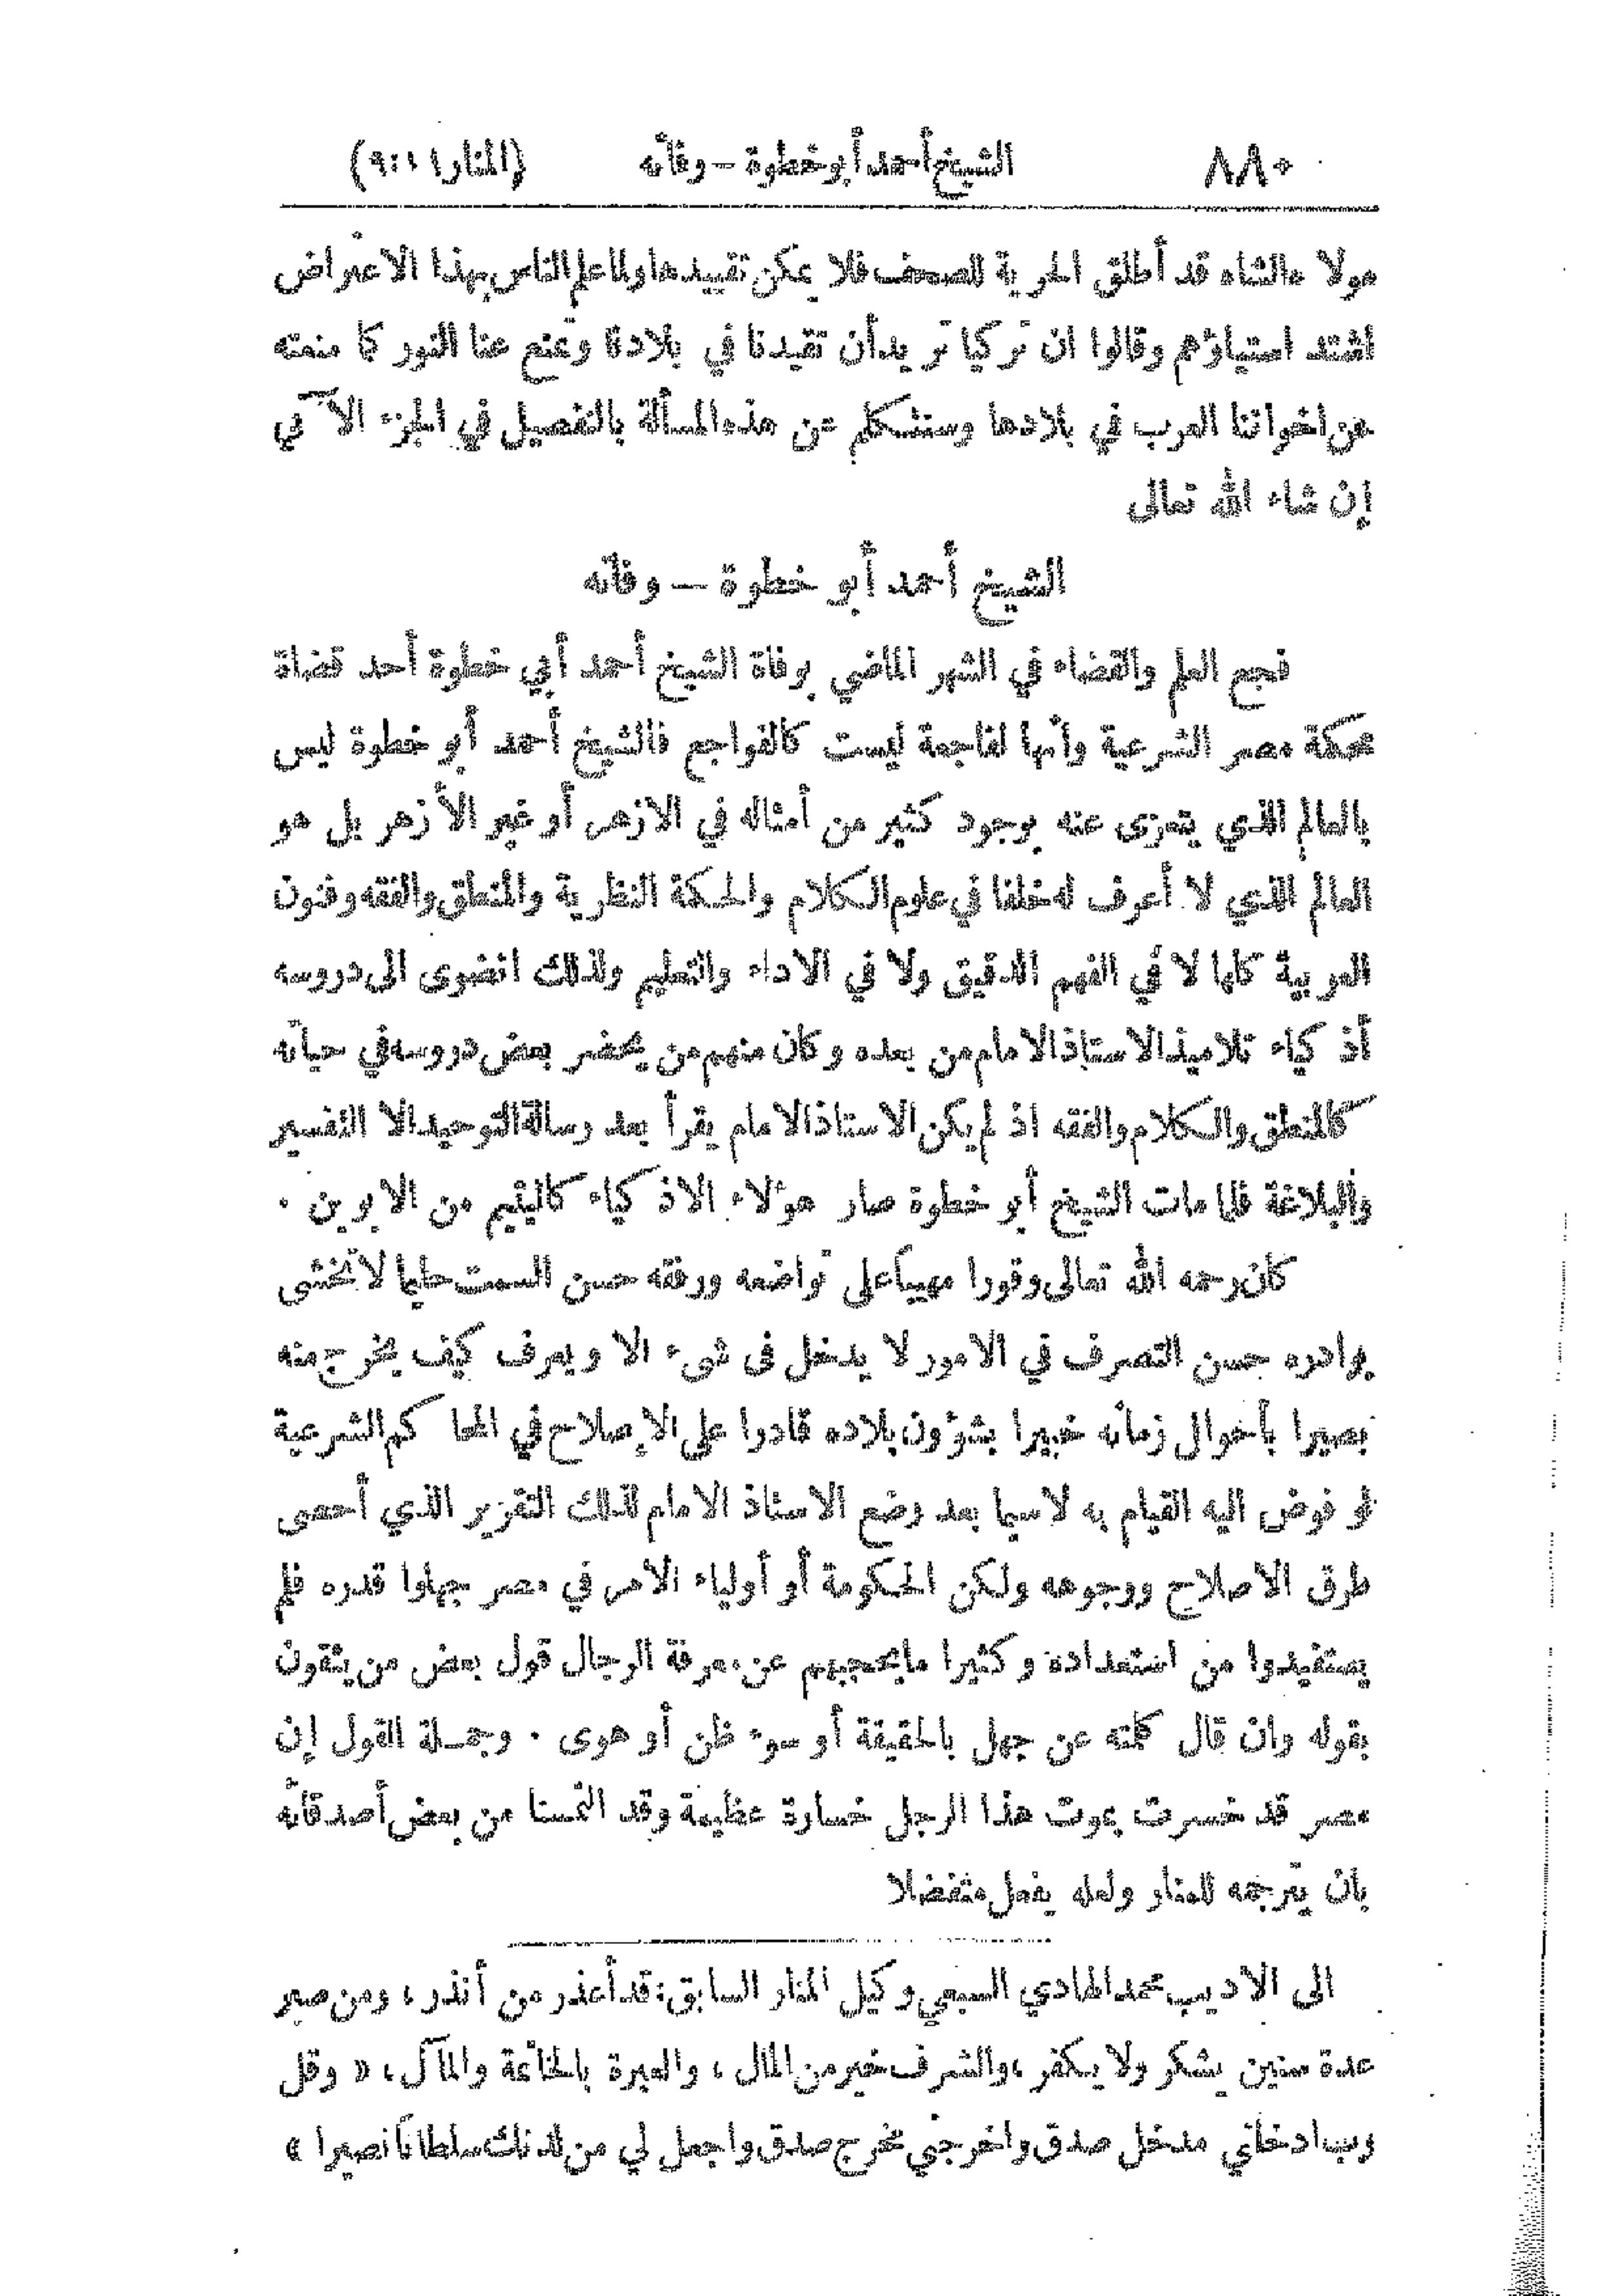 ٨٨٠ الشيخ أحمد أبو خطوة – وفاته (المنار ١١ : ٩)
مولانا الشاه قد أطلق الحرية للصحف فلا يمكن تقييدها ولما علم الناس بهذا الاعتراض
اشتد استياؤهم وقالوا ان تركيا تريد أن تقيدنا في بلادنا وتمنع عنا النور كما منعته
عن اخواننا العرب في بلادها وسنتكلم عن هذه المسألة بالتفصيل في الجزء الآتي
إن شاء الله تعالى
الشيخ أحمد أبو خطوة – وفاته
فجع العلم والقضاء في الشهر الماضي بوفاة الشيخ أحمد أبي خطوة أحد قضاة
محكمة مصر الشرعية وانها لفاجعة ليست كالفواجع فالشيخ أحمد أبو خطوة ليس
بالعالم الذي يتعزى عنه بوجود كثير من أمثاله في الازهر أو غير الأزهر بل هو
العالم الذي لا أعرف له خلفا في علوم الكلام والحكمة النظرية والمنطق والفقه وفنون
العربية كلها لا في الفهم الدقيق ولا في الاداء والتعليم ولذلك انضوى الى دروسه
أذكياء تلاميذ الاستاذ الامام من بعده وكان منهم من يحضر بعض دروسه في حياته
كالمنطق والكلام والفقه اذ لم يكن الاستاذ الامام يقرأ بعد رسالة التوحيد الا التفسير
والبلاغة فلما مات الشيخ أبو خطوة صار هؤلاء الاذكياء كاليتيم من الابوين .
كان رحمه الله تعالى وقورا مهيباً على تواضعه ورقته حسن السمت حليما لا تخشى
بوادره حسن التصرف في الامور لا يدخل فى شىء الا ويعرف كيف يخرج منه
بصيرا بأحوال زمانه خبيرا بشؤون بلاده قادرا على الإصلاح في المحاكم الشرعية
لو فوض اليه القيام به لاسيما بعد وضع الاستاذ الامام لذلك التقرير الذي أحصى
طرق الاصلاح ووجوهه ولكن الحكومة أو أولياء الامر في مصر جهلوا قدره فلم
يستفيدوا من استعداده وكثيرا ما يحجبهم عن معرفة الرجال قول بعض من يثقون
بقوله وان قال كلمته عن جهل بالحقيقة أو سوء ظن أو هوى . وجملة القول إن
مصر قد خسرت بموت هذا الرجل خسارة عظيمة وقد التمسنا من بعض أصدقائه
بان يترجمه للمنار ولعله يفعل متفضلا
الى الاديب محمد الهادي السبعي وكيل المنار السابق: قد أعذر من أنذر ، ومن صبر
عدة سنين يشكر ولا يكفر ، والشرف خير من المال ، والعبرة بالخاتمة والمآل ، « وقل
رب ادخلني مدخل صدق واخرجني مخرج صدق واجعل لي من لدنك سلطاناً نصيرا »